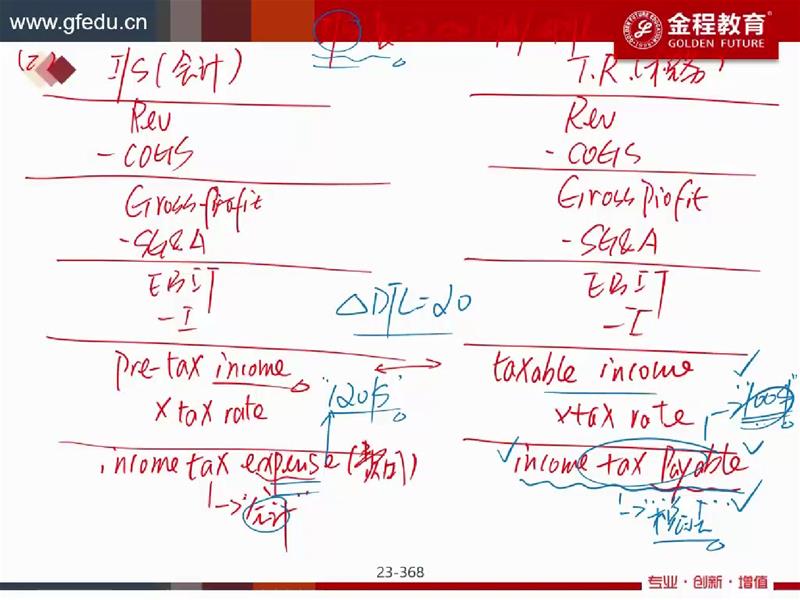 www.gfedu.cn
金程教育
GOLDEN FUTURE
GOLDEN FUTURE EDUCATION
(2)
I/S(会计)
T.R.(税务)
Rev
Rev
- COGS
- COGS
Gross profit
Gross Profit
- SG&A
- SG&A
EBIT
EBIT
- I
- I
△DTL=20
pre-tax income
taxable income
"120"
"100$"
× tax rate
× tax rate
income tax expense (费用)
income tax payable
会计
税法
23-368
专业·创新·增值